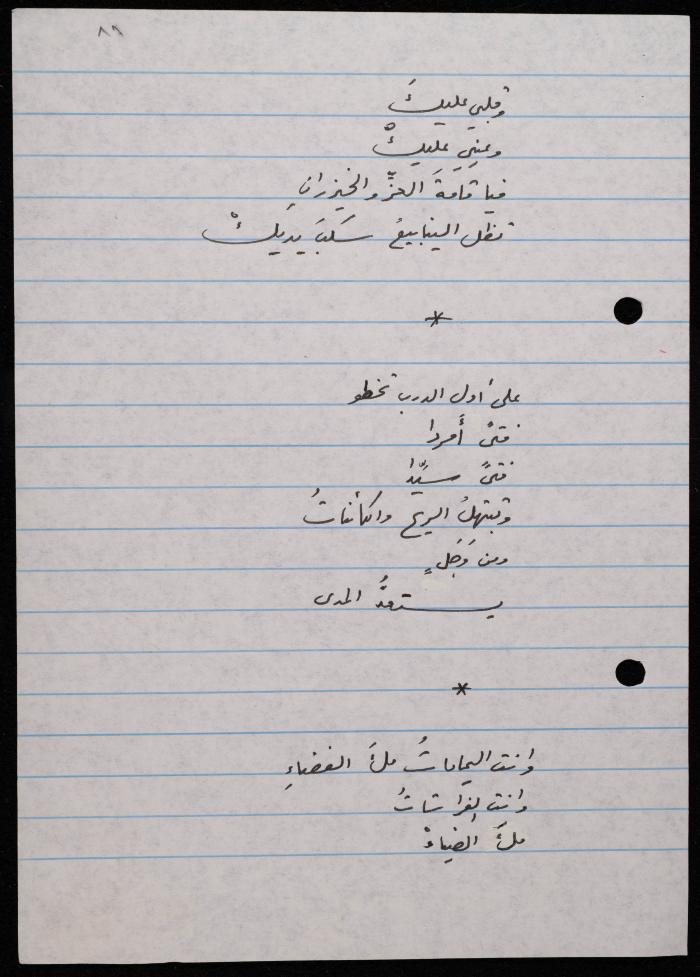 ٨٩
وقلبي عليكَ
وعيني عليكْ
فيا قامةَ العزِّ والخيزرانِ
تظل الينابيعُ سَكبَ يديكْ
*
على أول الدرب تخطو
فتىً أمردا
فتىً سيّدا
وتبتهلُ الريح والكائناتُ
ومن وَجَلٍ
يستعدُّ المدى
*
وانت اليماماتُ ملءَ الفضاءِ
وانت الفراشاتُ
ملءَ الضياءْ